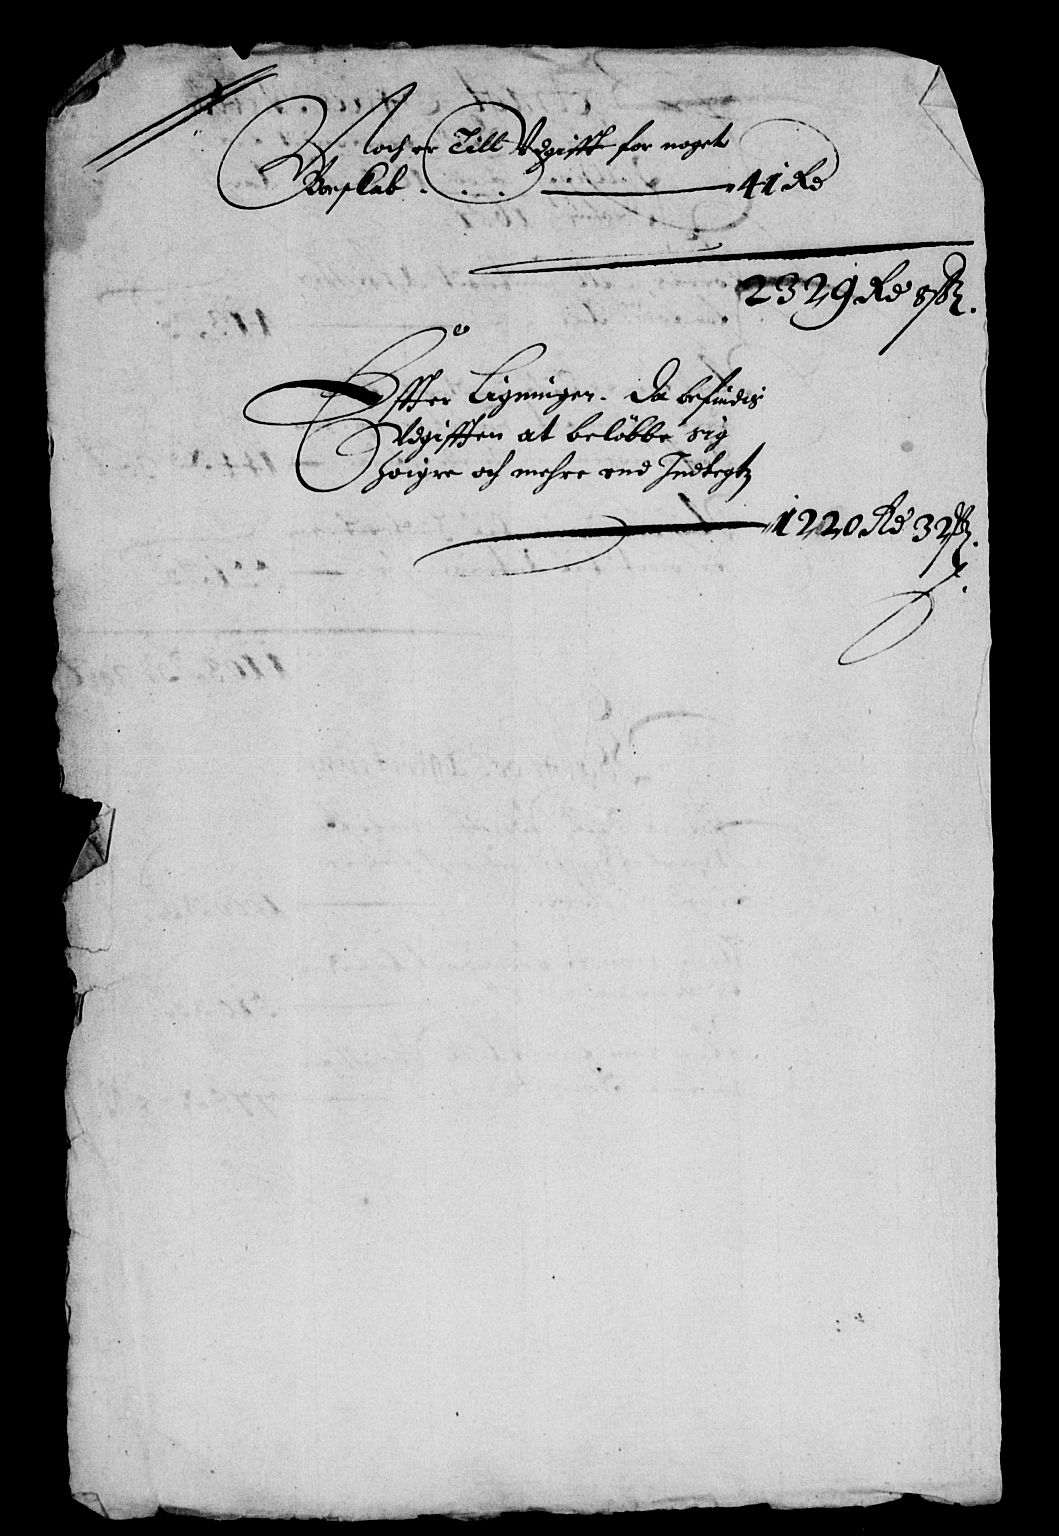 Noch er Till Udgifft for noget
Boeskab . . . — 41 Rd
2329 Rd 8 ß.
Effter Ligninger. Da befindis
Udgifften at beløbbe sig
høigre och mehre end Indtegtz
1220 Rd 32 ß.